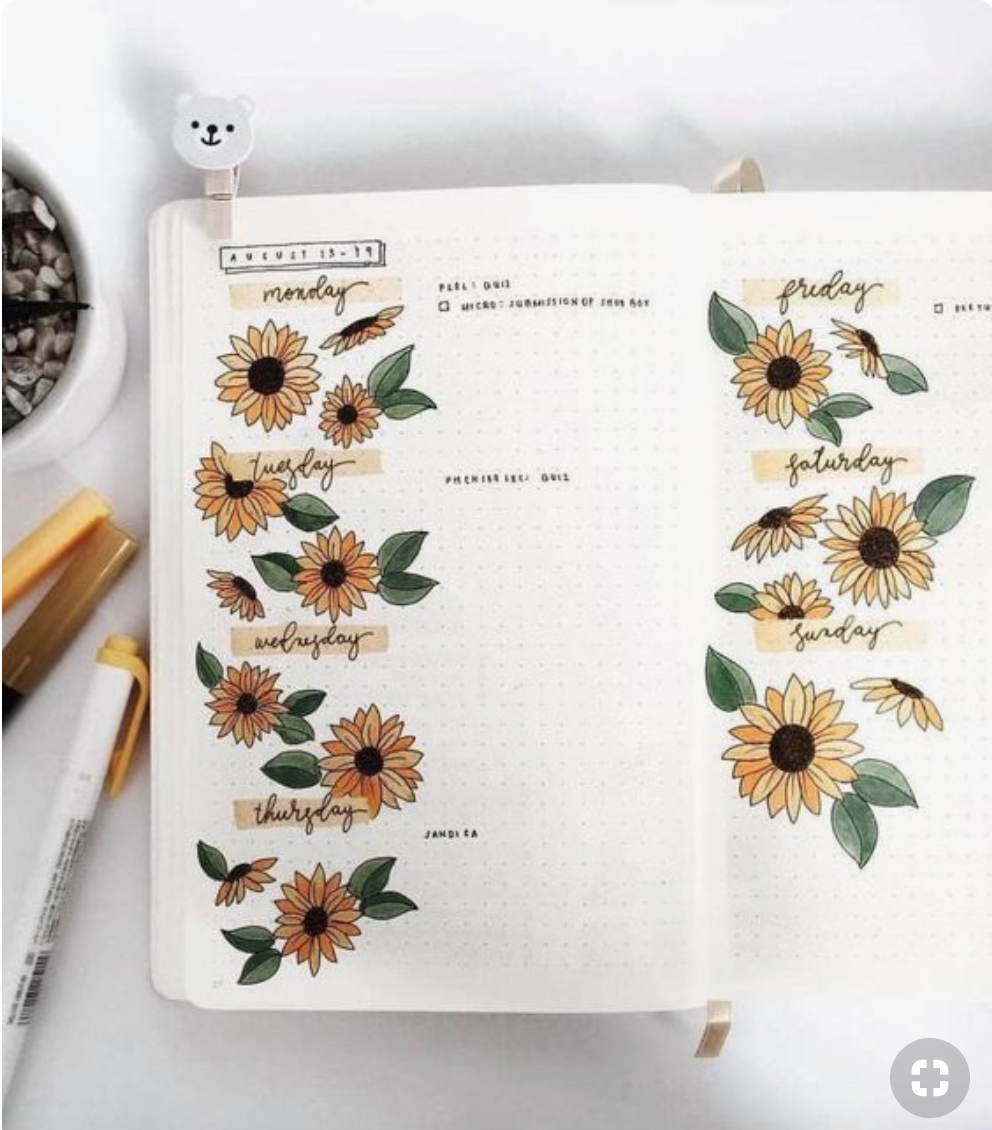 AUGUST 13-19
monday
QUIZ
MICRO: SUBMISSION OF SHOE BOX
tuesday
QUIZ
wednesday
thursday
friday
saturday
sunday